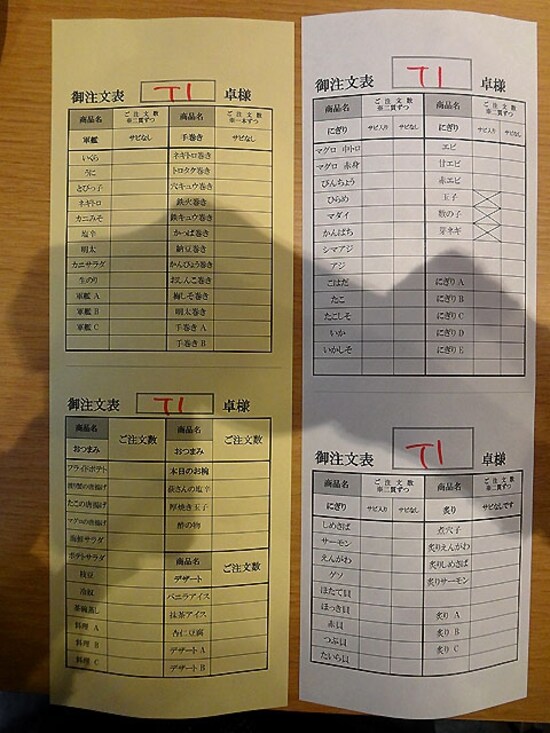 御注文表 T1 卓様
商品名 ご注文数 ※二貫ずつ 商品名 ご注文数 ※一本ずつ
軍艦 サビなし 手巻き サビなし
いくら ネギトロ巻き
うに トロタク巻き
とびっ子 穴キュウ巻き
ネギトロ 鉄火巻き
カニみそ 鉄キュウ巻き
塩辛 かっぱ巻き
明太 納豆巻き
カニサラダ かんぴょう巻き
生のり おしんこ巻き
軍艦 A 梅しそ巻き
軍艦 B 明太巻き
軍艦 C 手巻き A
手巻き B
御注文表 T1 卓様
商品名 ご注文数 商品名 ご注文数
おつまみ おつまみ
フライドポテト 本日のお椀
の唐揚げ 萩さんの塩辛
たこの唐揚げ 厚焼き玉子
マグロの唐揚げ 酢の物
海鮮サラダ
ポテトサラダ 商品名 ご注文数
枝豆 デザート
冷奴 バニラアイス
茶碗蒸し 抹茶アイス
料理 A 杏仁豆腐
料理 B デザート A
料理 C デザート B
御注文表 T1 卓様
商品名 ご注文数 ※二貫ずつ 商品名 ご注文数 ※二貫ずつ
にぎり サビ入り サビなし にぎり サビ入り サビなし
マグロ 中トロ エビ
マグロ 赤身 甘エビ
びんちょう 赤エビ
ひらめ 玉子
マダイ 数の子
かんぱち 芽ネギ
シマアジ
アジ
こはだ にぎり A
たこ にぎり B
たこしそ にぎり C
いか にぎり D
いかしそ にぎり E
御注文表 T1 卓様
商品名 ご注文数 ※二貫ずつ 商品名 ご注文数 ※二貫ずつ
にぎり サビ入り サビなし 炙り サビなしです
しめさば 煮穴子
サーモン 炙りえんがわ
えんがわ 炙りしめさば
ゲソ 炙りサーモン
ほたて貝
ほっき貝 炙り A
赤貝 炙り B
つぶ貝 炙り C
たいら貝